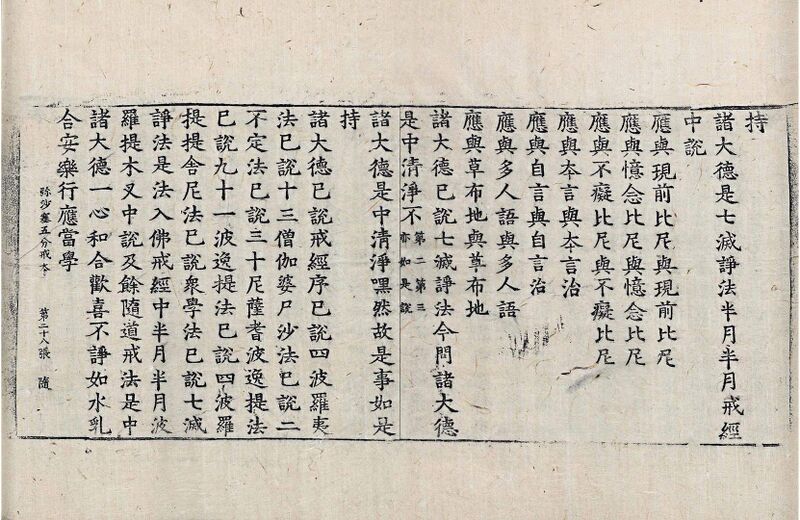 持
諸大德是七滅諍法半月半月戒經
中說
應與現前比尼與現前比尼
應與憶念比尼與憶念比尼
應與不癡比尼與不癡比尼
應與本言治與本言治
應與自言與自言治
應與多人語與多人語
應與草布地與草布地
諸大德已說七滅諍法今問諸大德
是中清淨不第二第三亦如是說
諸大德是中清淨嘿然故是事如是
持
諸大德已說戒經序已說四波羅夷
法已說十三僧伽婆尸沙法已說二
不定法已說三十尼薩耆波逸提法
已說九十一波逸提法已說四波羅
提提舍尼法已說衆學法已說七滅
諍法是法入佛戒經中半月半月波
羅提木叉中說及餘隨道戒法是中
諸大德一心和合歡喜不諍如水乳
合安樂行應當學
弥沙塞五分戒本 第二十八張 隨